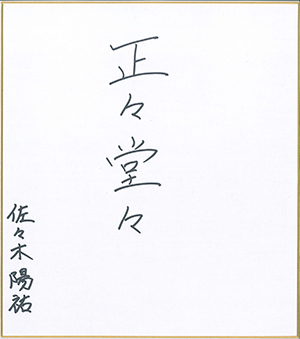 正々堂々
佐々木陽祐